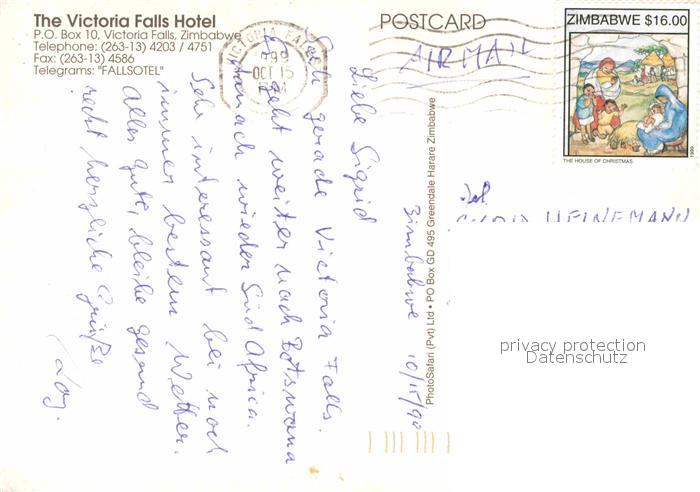 The Victoria Falls Hotel
P.O. Box 10, Victoria Falls, Zimbabwe
Telephone: (263-13) 4203 / 4751
Fax: (263-13) 4586
Telegrams: "FALLSOTEL"
POSTCARD
AIRMAIL
VICTORIA FALLS
OCT 15
ZIMBABWE $16.00
THE HOUSE OF CHRISTMAS
1999
Zimbabwe 10/15/99
Liebe Sigrid
gerade Victoria Falls.
Es geht weiter nach Botswana
danach wieder Süd Africa.
Sehr interessant bei noch
immer bestem Wetter.
Alles gute, bleibe gesund
recht herzliche Grüße
PhotoSafari (Pvt) Ltd • PO Box GD 495 Greendale Harare Zimbabwe
HEINEMANN
privacy protection
Datenschutz